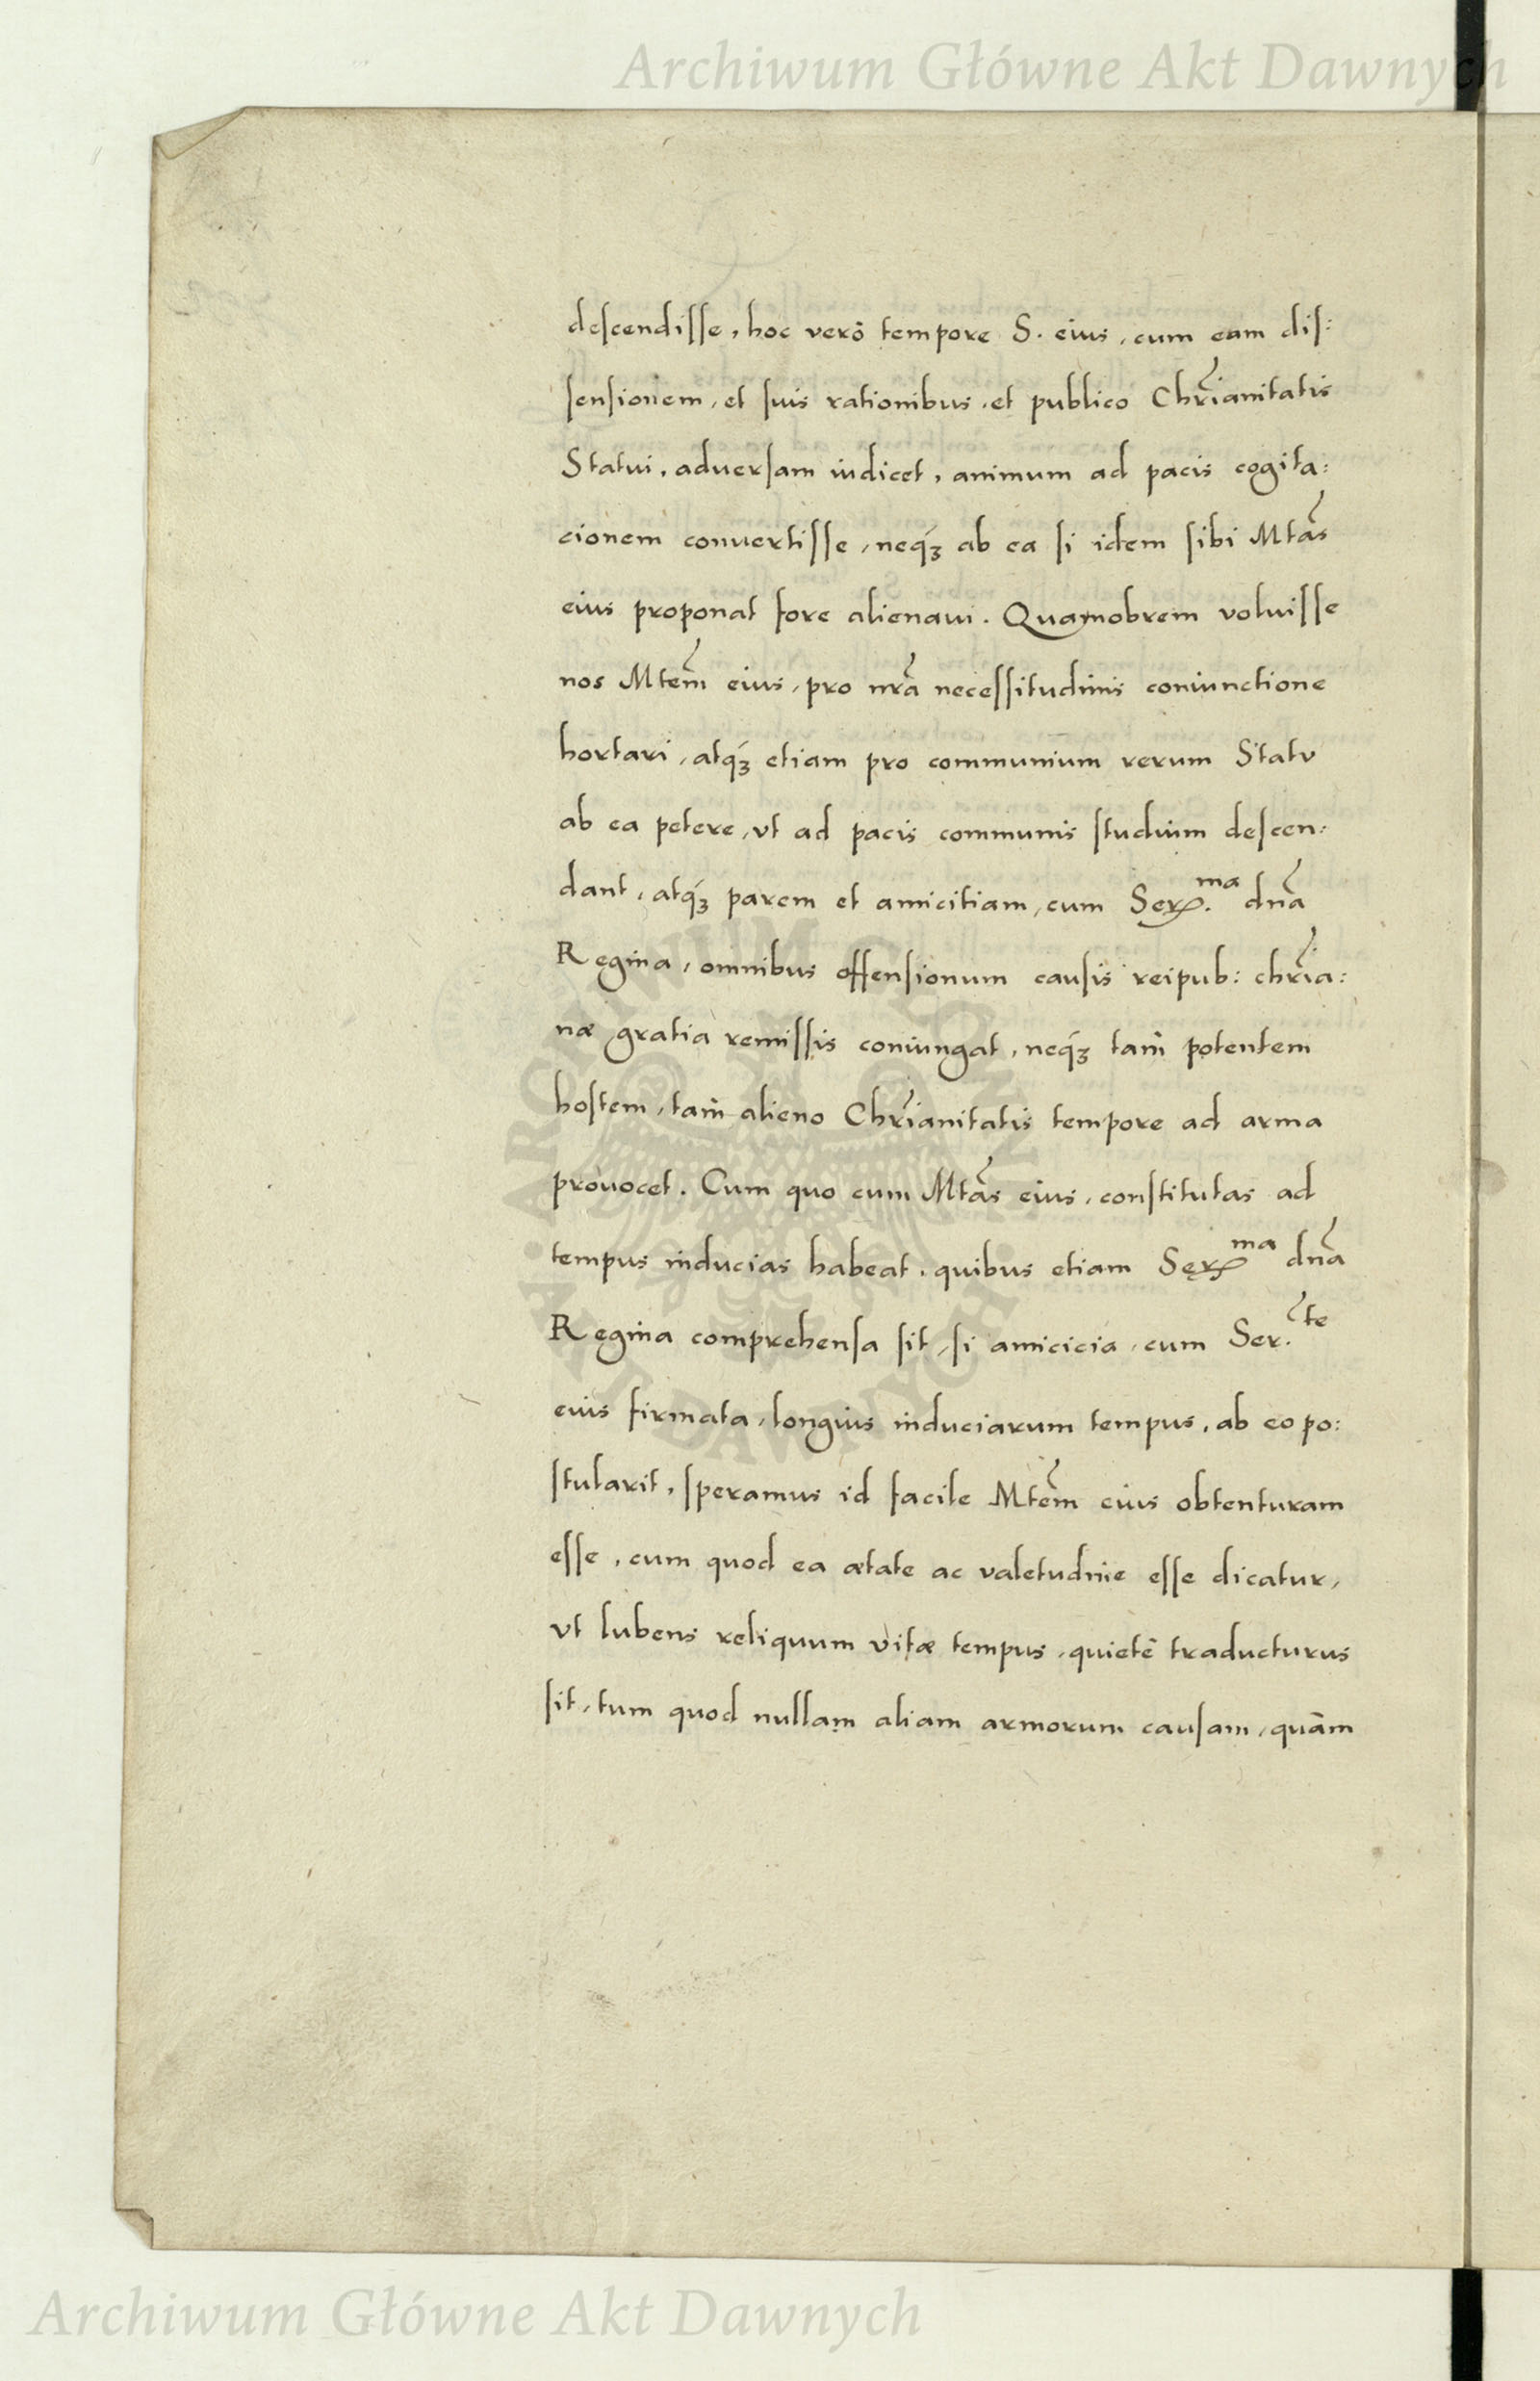 Archiwum Główne Akt Dawnych
descendisse, hoc verò tempore S. eius, cum eam dis:
sensionem, et suis rationibus, et publico Chr̃ianitatis
Statui, aduersam iudicet, animum ad pacis cogita:
cionem conuertisse, neqꝫ ab ea si idem sibi Mtas̃
eius proponat fore alienam. Quamobrem voluisse
nos Mtem̃ eius, pro nr̃a necessitudinis coniunctione
hortari, atqꝫ etiam pro communium rerum Statu
ab ea petere, vt ad pacis communis studium descen:
dant, atqꝫ parem et amicitiam, cum Ser.ma dña
Regina, omnibus offensionum causis reipub: chr̃ia:
næ gratia remissis coniungat, neqꝫ tam potentem
hostem, tam alieno Chr̃ianitatis tempore ad arma
prouocet. Cum quo cum Mtas̃ eius, constitutas ad
tempus inducias habeat, quibus etiam Serma dña
Regina comprehensa sit, si amicicia, cum Ser.te
eius firmata, longius induciarum tempus, ab eo po:
stularit, speramus id facile Mtem̃ eius obtenturam
esse, cum quod ea ætate ac valetudine esse dicatur,
vt lubens reliquum vitæ tempus, quietè traducturus
sit, tum quod nullam aliam armorum causam, quàm
Archiwum Główne Akt Dawnych